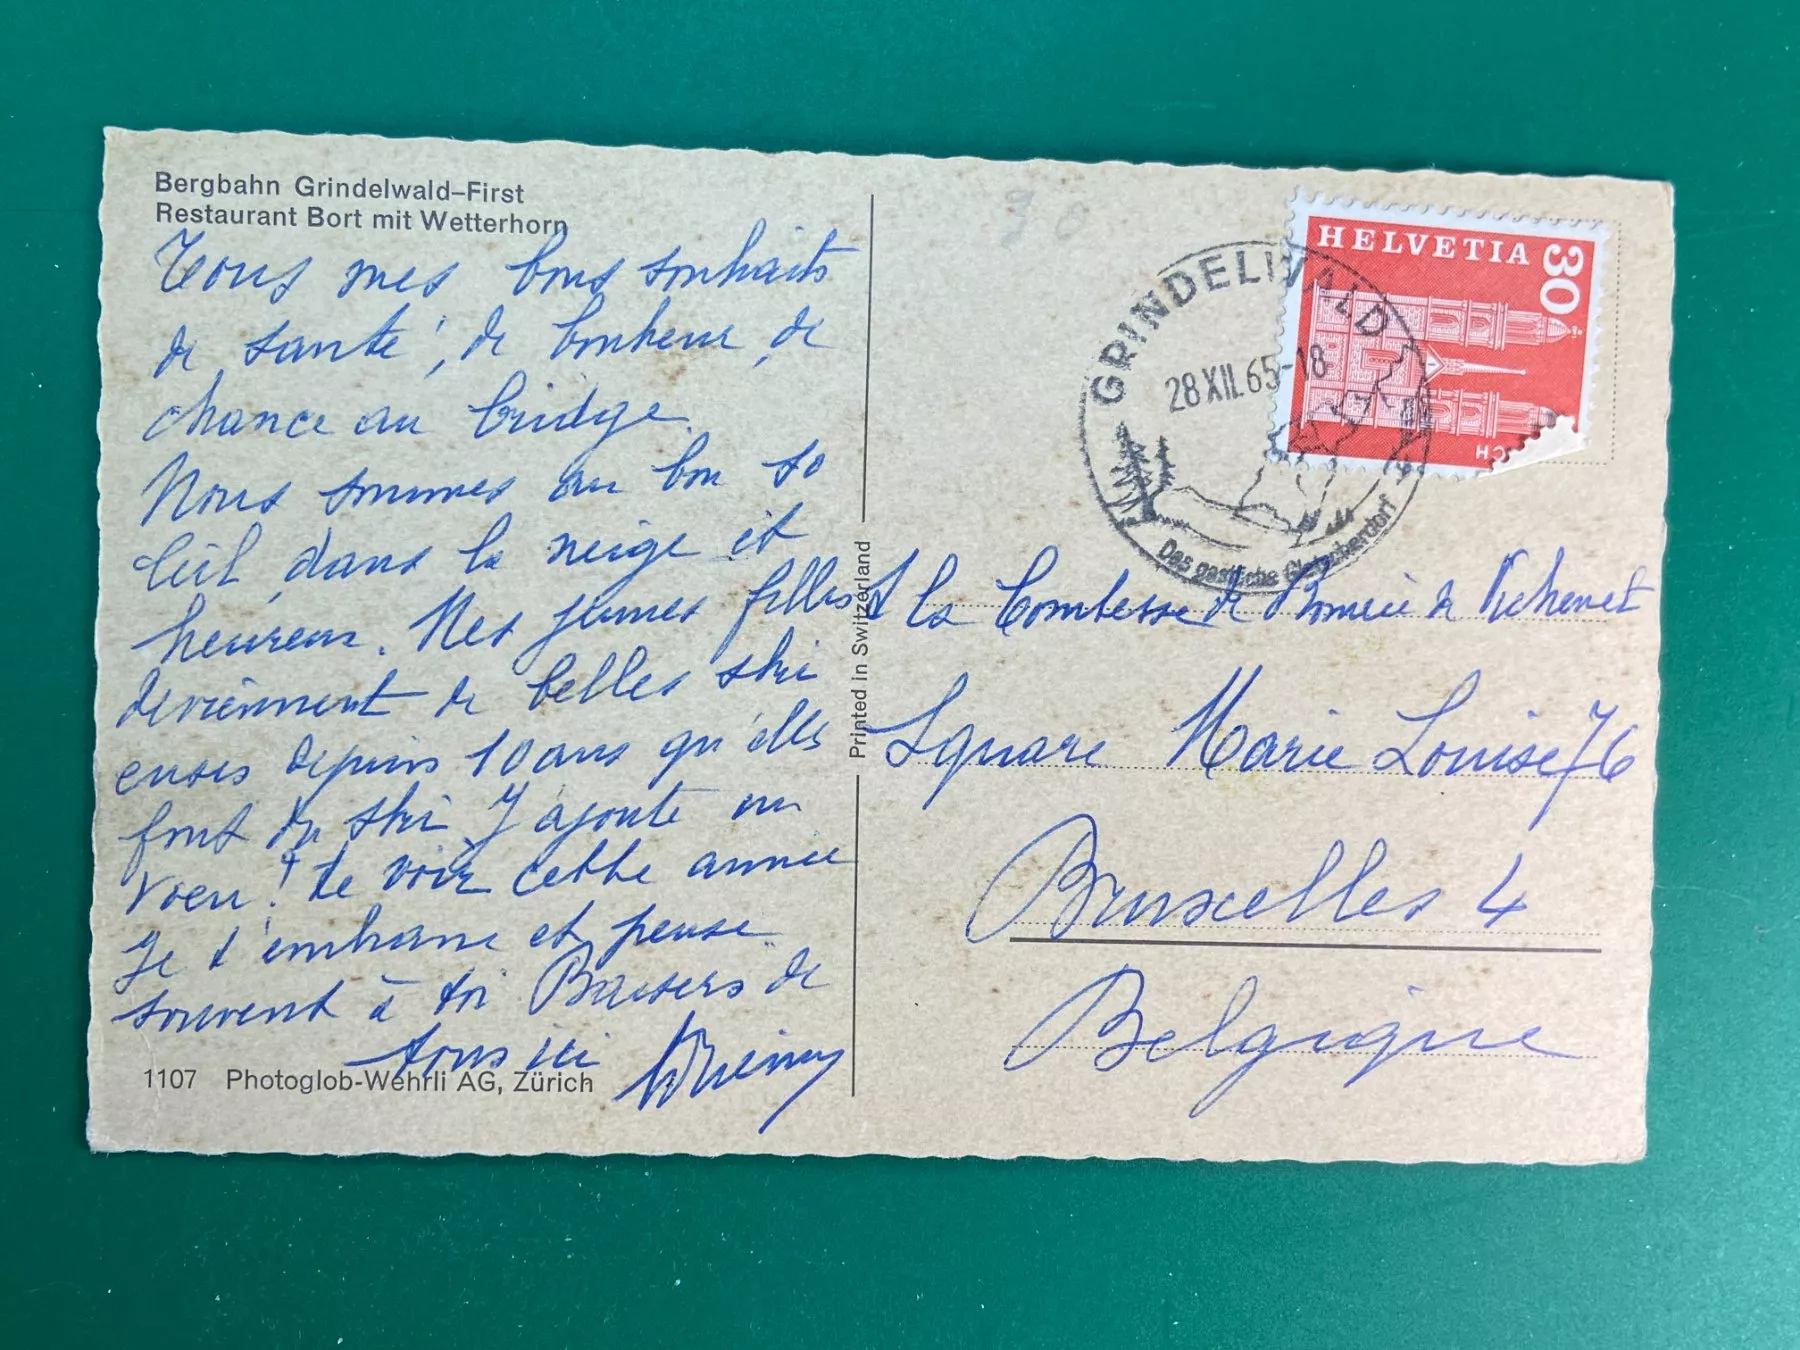 Bergbahn Grindelwald–First
Restaurant Bort mit Wetterhorn
Tous mes bons souhaits
de santé, de bonheur, de
chance au bridge.
Nous sommes au bon so
leil, dans la neige et
heureux. Mes jeunes filles
deviennent de belles ski
euses depuis 10 ans qu'elles
font du ski. J'ajoute un
voeu! te voir cette année
Je t'embrasse et pense
souvent à toi Baisers de
tous ici
1107 Photoglob-Wehrli AG, Zürich
Printed in Switzerland
30
HELVETIA
30
CH
GRINDELWALD
28.XII.65-18
Das gastliche Gletscherdorf
A la Comtesse de de
Square Marie Louise 76
Bruxelles 4
Belgique